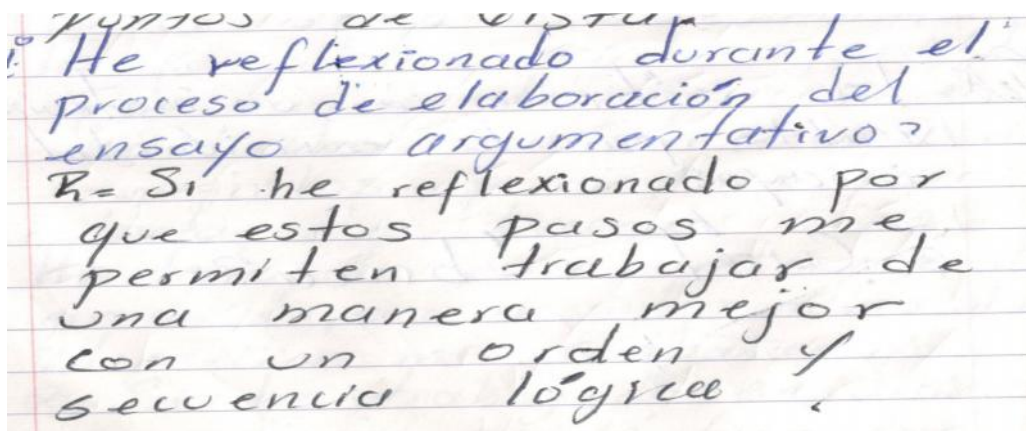 puntos de vista
¿He reflexionado durante el
proceso de elaboración del
ensayo argumentativo?
R= Si he reflexionado por
que estos pasos me
permiten trabajar de
una manera mejor
con un orden y
secuencia lógica.